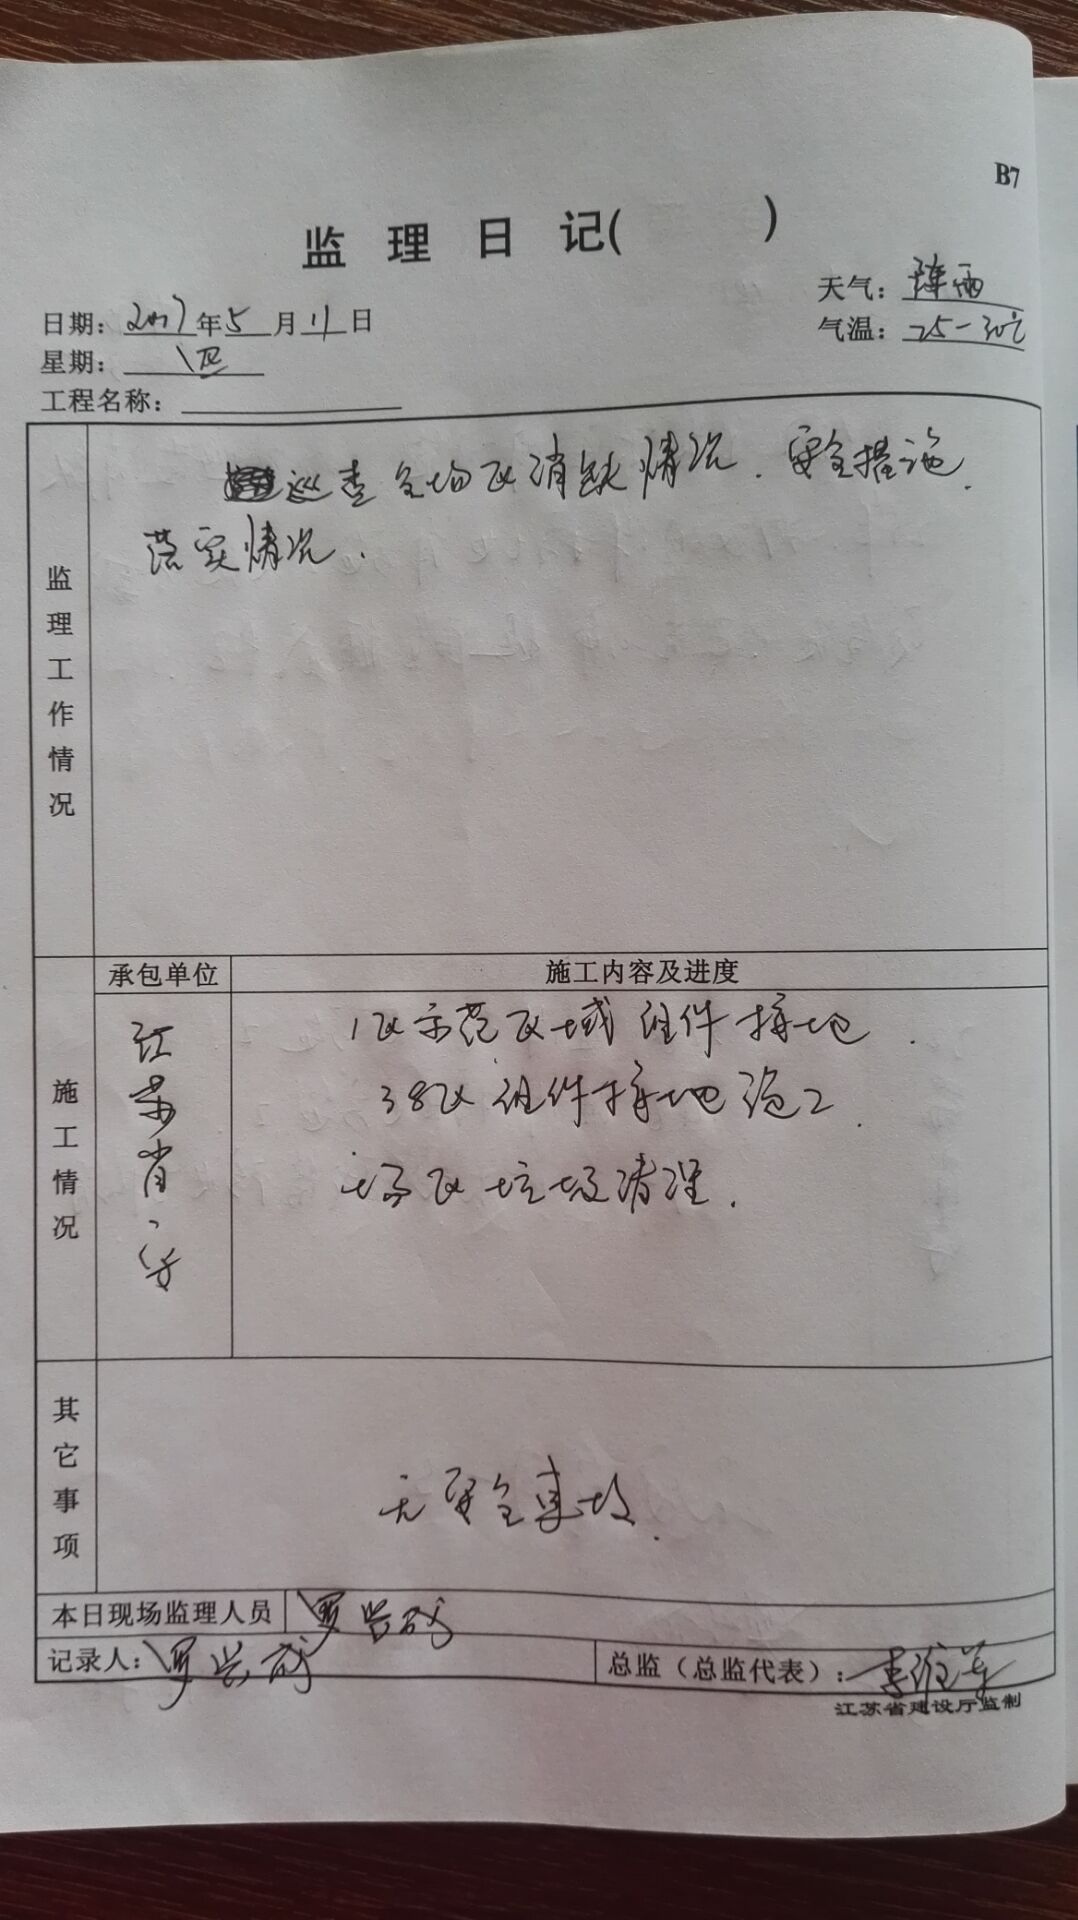 B7
监理日记( )
日期：2017年5月11日
天气：阵雨
星期：四
气温：25-30℃
工程名称：
监理工作情况
巡查全场区消缺情况.安全措施
落实情况.
承包单位
施工内容及进度
施工情况
江苏省一安
1区示范区域组件接地.
38区组件接地施工
场区垃圾清理.
其它事项
无安全事故.
本日现场监理人员
罗
记录人：罗
总监（总监代表）：李维
江苏省建设厅监制